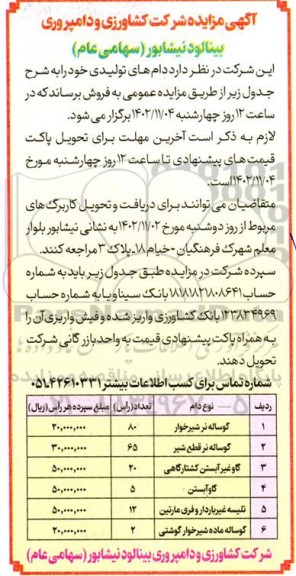 آگهی مزایده شرکت کشاورزی و دامپروری
بینالود نیشابور (سهامی عام)
این شرکت در نظر دارد دام های تولیدی خود را به شرح
جدول زیر از طریق مزایده عمومی به فروش برساند که در
ساعت ۱۲ روز چهارشنبه ۱۴۰۲/۱۱/۰۴ برگزار می شود.
لازم به ذکر است آخرین مهلت برای تحویل پاکت
قیمت های پیشنهادی تا ساعت ۱۲ روز چهارشنبه مورخ
۱۴۰۲/۱۱/۰۴ است.
متقاضیان می توانند برای دریافت و تحویل کاربرگ های
مربوط از روز دوشنبه مورخ ۱۴۰۲/۱۱/۰۲ به نشانی نیشابور بلوار
معلم شهرک فرهنگیان - خیام ۱۸ـ پلاک ۳ مراجعه کنند.
سپرده شرکت در مزایده طبق جدول زیر باید به شماره
حساب ۱۱۸۱۸۱۲۱۸۰۸۶۴۱ بانک سینا و یا به شماره حساب
۱۲۳۸۲۴۹۶۹ بانک کشاورزی واریز شده و فیش واریزی آن را
به همراه پاکت پیشنهادی قیمت به واحد بازرگانی شرکت
تحویل دهند.
شماره تماس برای کسب اطلاعات بیشتر ۰۵۱۴۲۶۱۰۳۳۱
ردیف نوع دام تعداد (راس) مبلغ سپرده هر راس (ریال)
۱ گوساله نر شیرخوار ۸۰ ۲۰,۰۰۰,۰۰۰
۲ گوساله نر قطع شیر ۶۵ ۳۰,۰۰۰,۰۰۰
۳ گاو غیر آبستن کشتارگاهی ۲۰ ۵۰,۰۰۰,۰۰۰
۴ گاو آبستن ۵ ۵۰,۰۰۰,۰۰۰
۵ تلیسه غیر باردار و فری مارتین ۱۲ ۵۰,۰۰۰,۰۰۰
۶ گوساله ماده شیرخوار گوشتی ۲ ۲۰,۰۰۰,۰۰۰
شرکت کشاورزی و دامپروری بینالود نیشابور (سهامی عام)